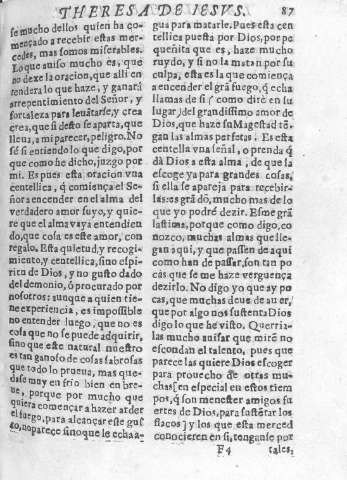 THERESA DE IESVS. 87
se mucho dellos quien ha co-
mençado a recebir estas mer-
cedes, mas somos miserables.
Lo que auiso mucho es, que
no dexe la oracion, que alli en-
tendera lo que haze, y ganarà
arrepentimiento del Señor, y
fortaleza para leuãtarse, y crea
crea, que si desto se aparta, que
lleua, a mi parecer, peligro. No
sè si entiendo lo que digo, por
que como he dicho, juzgo por
mi. Es pues esta oracion vna
centellica, q̃ comiença el Se-
ñor a encender en el alma del
verdadero amor suyo, y quie-
re que el alma vaya entendien
do, que cosa es este amor, con
regalo. Esta quietud, y recogi-
miento, y centellica, sino espi-
ritu de Dios, y no gusto dado
del demonio, ò procurado por
nosotros: aunque a quien tie-
ne experiencia, es impossible
no entender luego, que no es
cosa que no se puede adquirir,
sino que este natural nuestro
es tan ganoso de cosas sabrosas
que todo lo prueua, mas que-
dase muy en frio bien en bre-
ue, porque por mucho que
quiera començar a hazer arder
el fuego, para alcançar este gus
to, no parece sino que le echa a-
gua para matarle. Pues esta cen
tellica puesta por Dios, por pe
queñita que es, haze mucho
ruydo, y si no la matan por su
culpa, esta es la que comiença
a encender el grã fuego, q̃ echa
llamas de si (como dirè en su
lugar) del grandissimo amor de
Dios, que haze su Magestad tẽ
gan las almas perfetas. Es esta
centella vna señal, o prenda q̃
dà Dios a esta alma, de que la
escoge ya para grandes cosas,
si ella se apareja para recebir-
las: es grã dõ, mucho mas de lo
que yo podrè dezir. Esme grã
lastima, porque como digo, co
nozco, muchas almas que lle-
gan aqui, y que passen de aqui
como han de passar, son tan po
cas que se me haze verguença
dezirlo. No digo yo que ay po
cas, que muchas deue de auer,
que por algo nos sustenta Dios
digo lo que he visto. Querria-
las mucho auisar que mirẽ no
escondan el talento, pues que
parece las quiere Dios escoger
para prouecho de otras mu-
chas [en especial en estos tiem
pos, q̃ son menester amigos fu
ertes de Dios, para sustẽtar los
flacos] y los que esta merced
conocieren en si, tenganse por
F 4 tales,